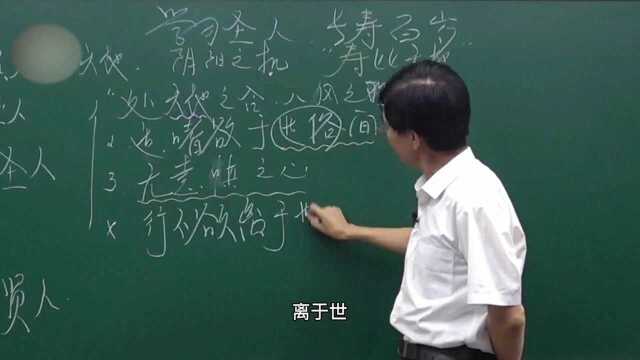 学习圣人
长寿百岁
天地
阴阳之机
"处天地之合,八风之
人
2 适嗜欲于世俗间
圣人
3 无恚嗔之心
行不欲离于世
贤人
离于世